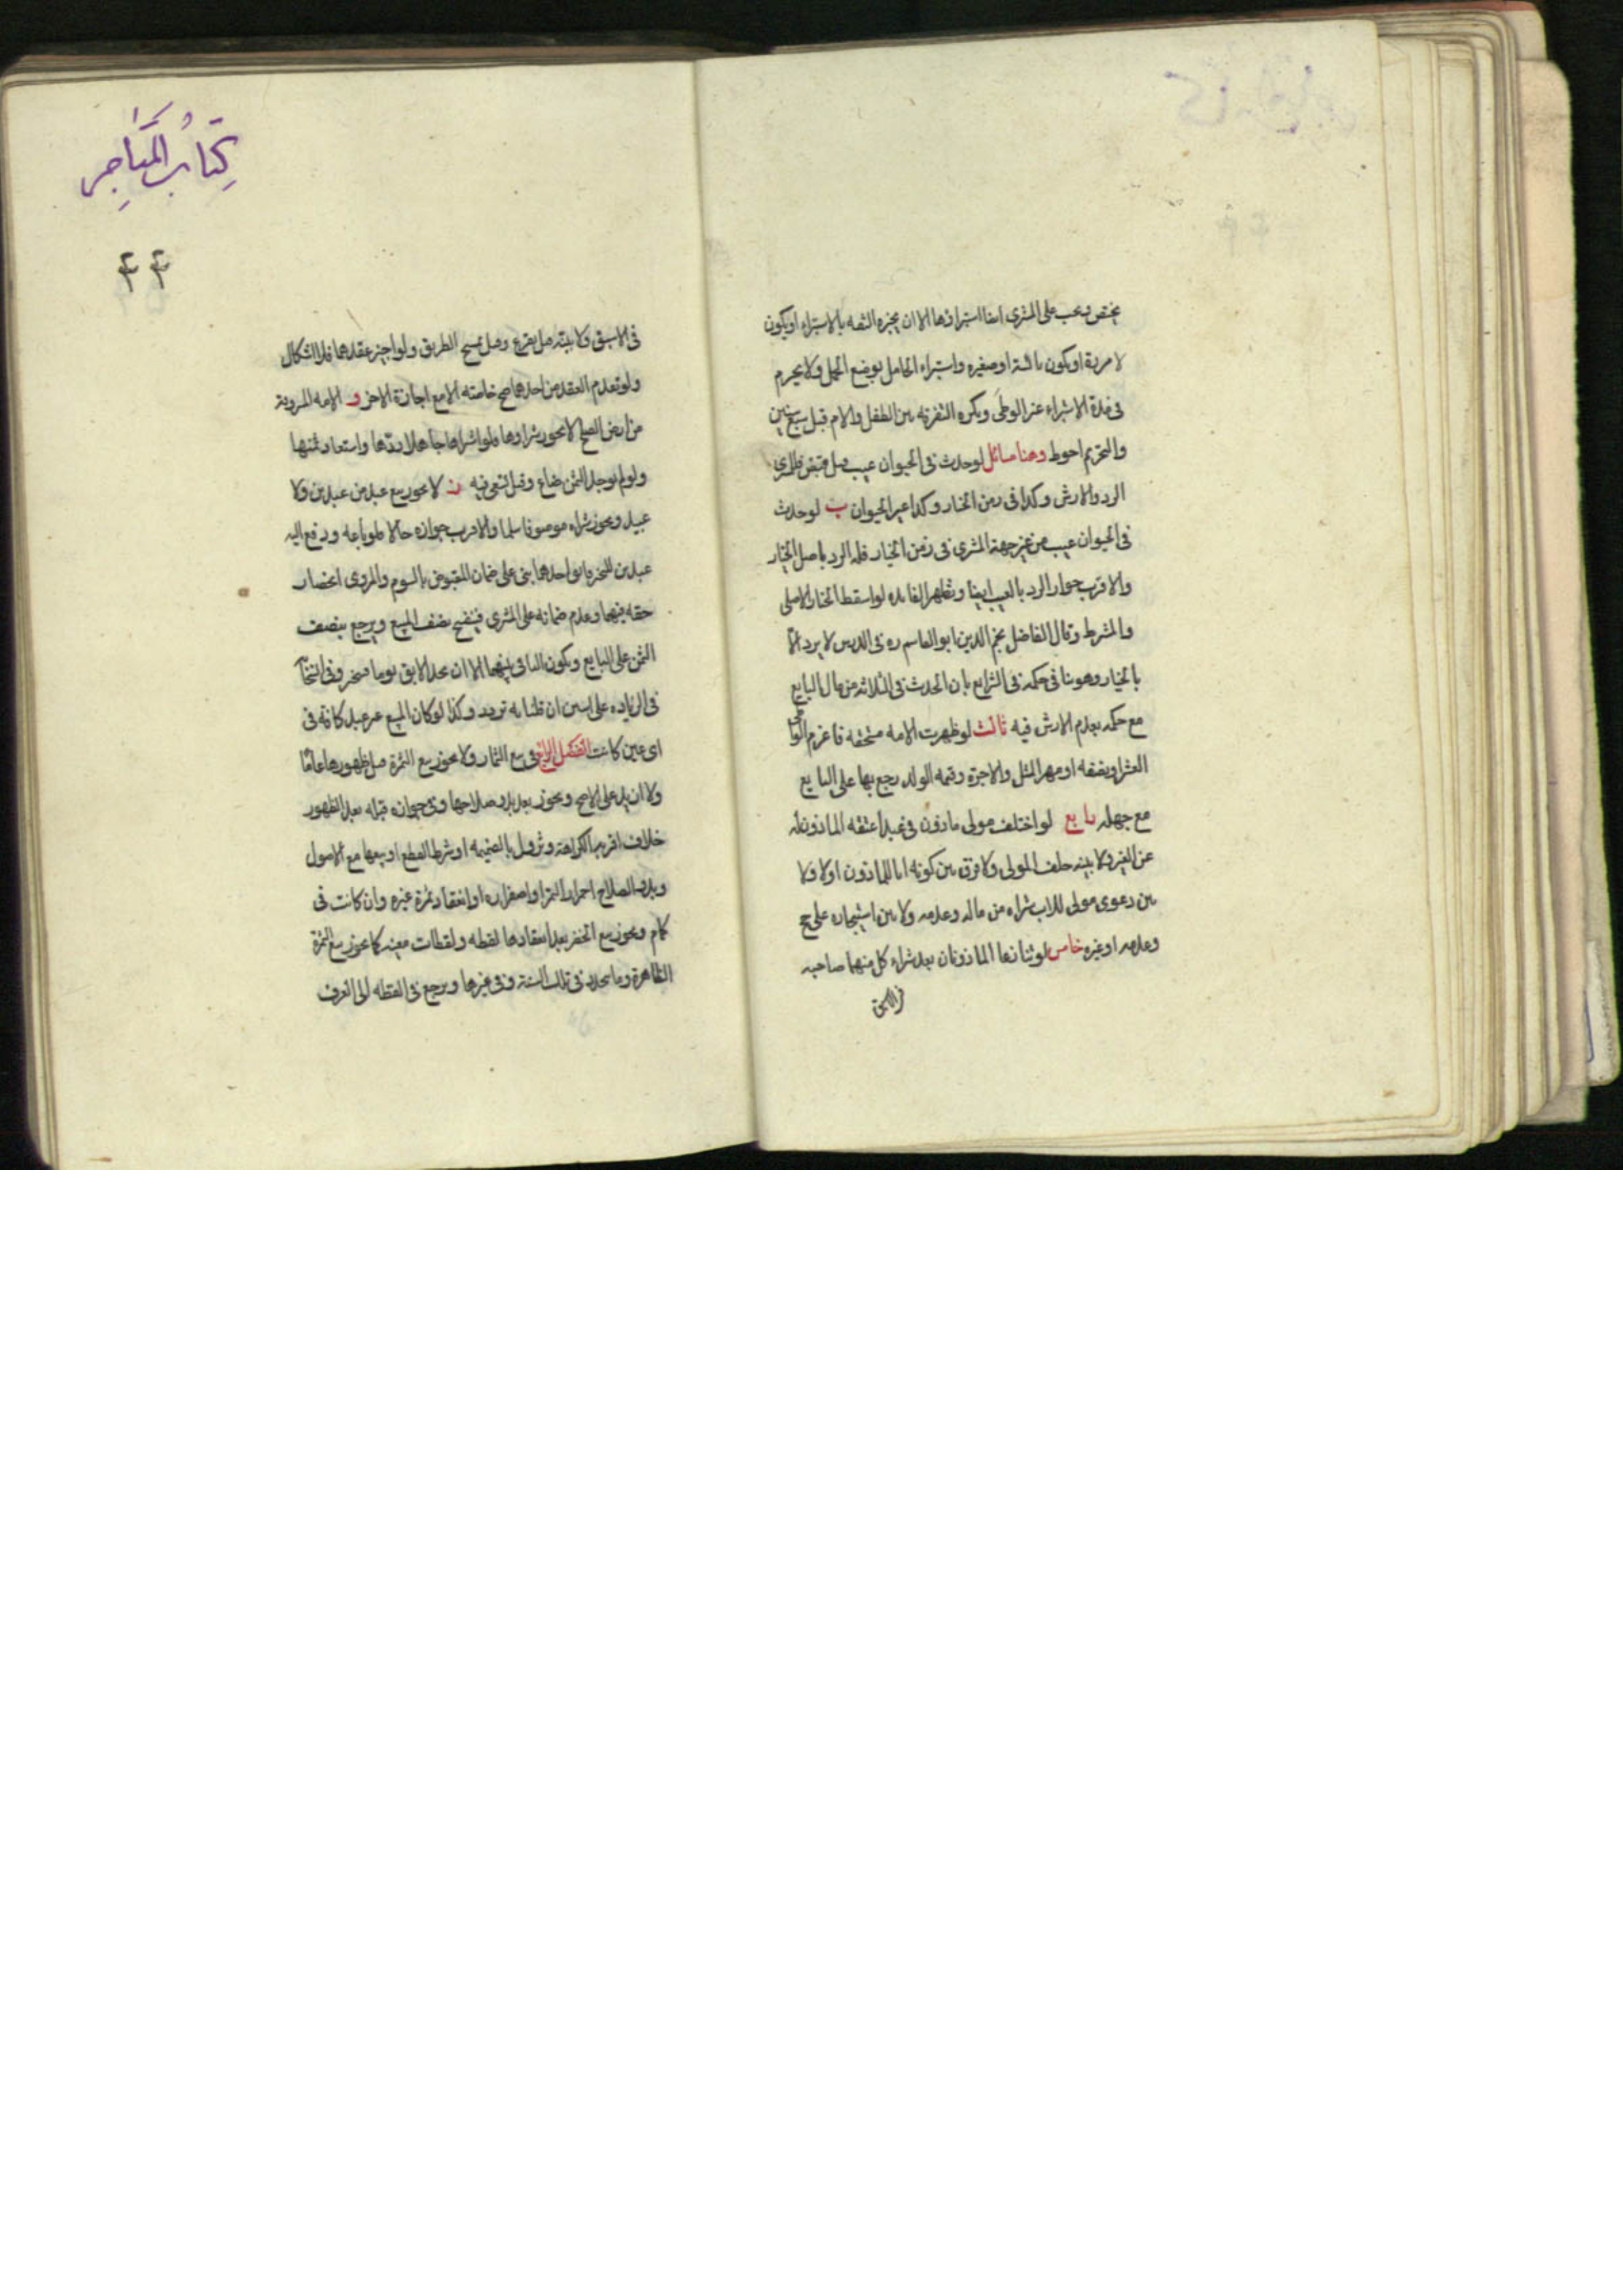 يختص ويجب على المشتري ايضا استبراؤها الا ان يخبره الثقه بالاستبراء او يكون
لامرية او يكون يائسة او صغيره واستبراء الحامل بوضع الحمل ولا يحرم
في مدة الاستبراء غير الوطى ويكره التفرقه بين الطفل والام قبل سبع سنين
والتحريم احوط وهنا مسائل لو حدث في الحيوان عيب قبل قبض فللمشتري
الرد والارش وكذا في زمن الخيار وكذا غير الحيوان ب لو حدث
في الحيوان عيب من غير جهة المشتري في زمن الخيار فله الرد باصل الخيار
والاقرب جواز الرد بالعيب ايضا وتظهر الفايده لو اسقط الخيار الاصلي
والمشرط وقال الفاضل نجم الدين ابو القاسم ره في الدرس لا يرد الا
بالخيار وهو ينافي حكمه في الشرايع بان الحدث في الثلاثه من مال البايع
مع حكمه بعدم الارش فيه ثالث لو ظهرت الامه مستحقه فاغرم الواطى
العشر او نصفه او مهر المثل والاجرة وقيمه الولد رجع بها على البايع
مع جهله رابع لو اختلف مولى مأذون في عبد اعتقه الماذون له
عن الغير ولا بينه حلف المولى ولا فرق بين كونه ابا للماذون اولا ولا
بين دعوى مولى للاب شراه من ماله وعدمه ولا بين استيجاره على حج
وعدمه او غيره خامس لو تنازعا الماذونان بعد شراء كل منهما صاحبه
في الاسبق
كِتابُ المَتاجِر
٤٤
في الاسبق ولا بينة قيل يقرع وقيل يمسح الطريق ولو اجيز عقدهما فلا اشكال
ولو تقدم العقد من احدهما صح خاصته الا مع اجازة الاخر و الامه المسروقة
من ارض الصلح لا يجوز شراوها فلو اشتراها جاهلا ردها واستعاد ثمنها
ولو لم يوجد الثمن ضاع وقيل تسعى فيه ز لا يجوز بيع عبد من عبدين ولا
عبيد ويجوز شراه موصوفا سلما والاقرب جوازه حالا فلو باعه ودفع اليه
عبدين للتخير فابق احدهما بنى على ضمان المقبوض بالسوم والمروى انحصار
حقه فيهما وعدم ضمانه على المشتري فينفسخ نصف المبيع ويرجع بنصف
الثمن على البايع ويكون الباقي بينهما الا ان يجد الابق يوما فيتخير وفي انسحابه
في الزياده على اثنين ان قلنا به تردد وكذا لو كان المبيع غير عبد كامه في
اى عين كانت الفصل الرابع في بيع الثمار ولا يجوز بيع الثمرة قبل ظهورها عاما
ولا ازيد على الاصح ويجوز بعد بدو صلاحها وفي جوازه قبله بعد الظهور
خلاف اقربه الكراهة وتزول بالضميمه او شرط القطع او بيعها مع الاصول
وبدو الصلاح احمرار البسر او اصفراره او انعقاد ثمرة غيره وان كانت في
كمام ويجوز بيع الخضر بعد انعقادها لقطه ولقطات معينه كما يجوز بيع الثمرة
الظاهرة وما يتجدد في تلك السنة وفي غيرها ويرجع في اللقطه الى العرف